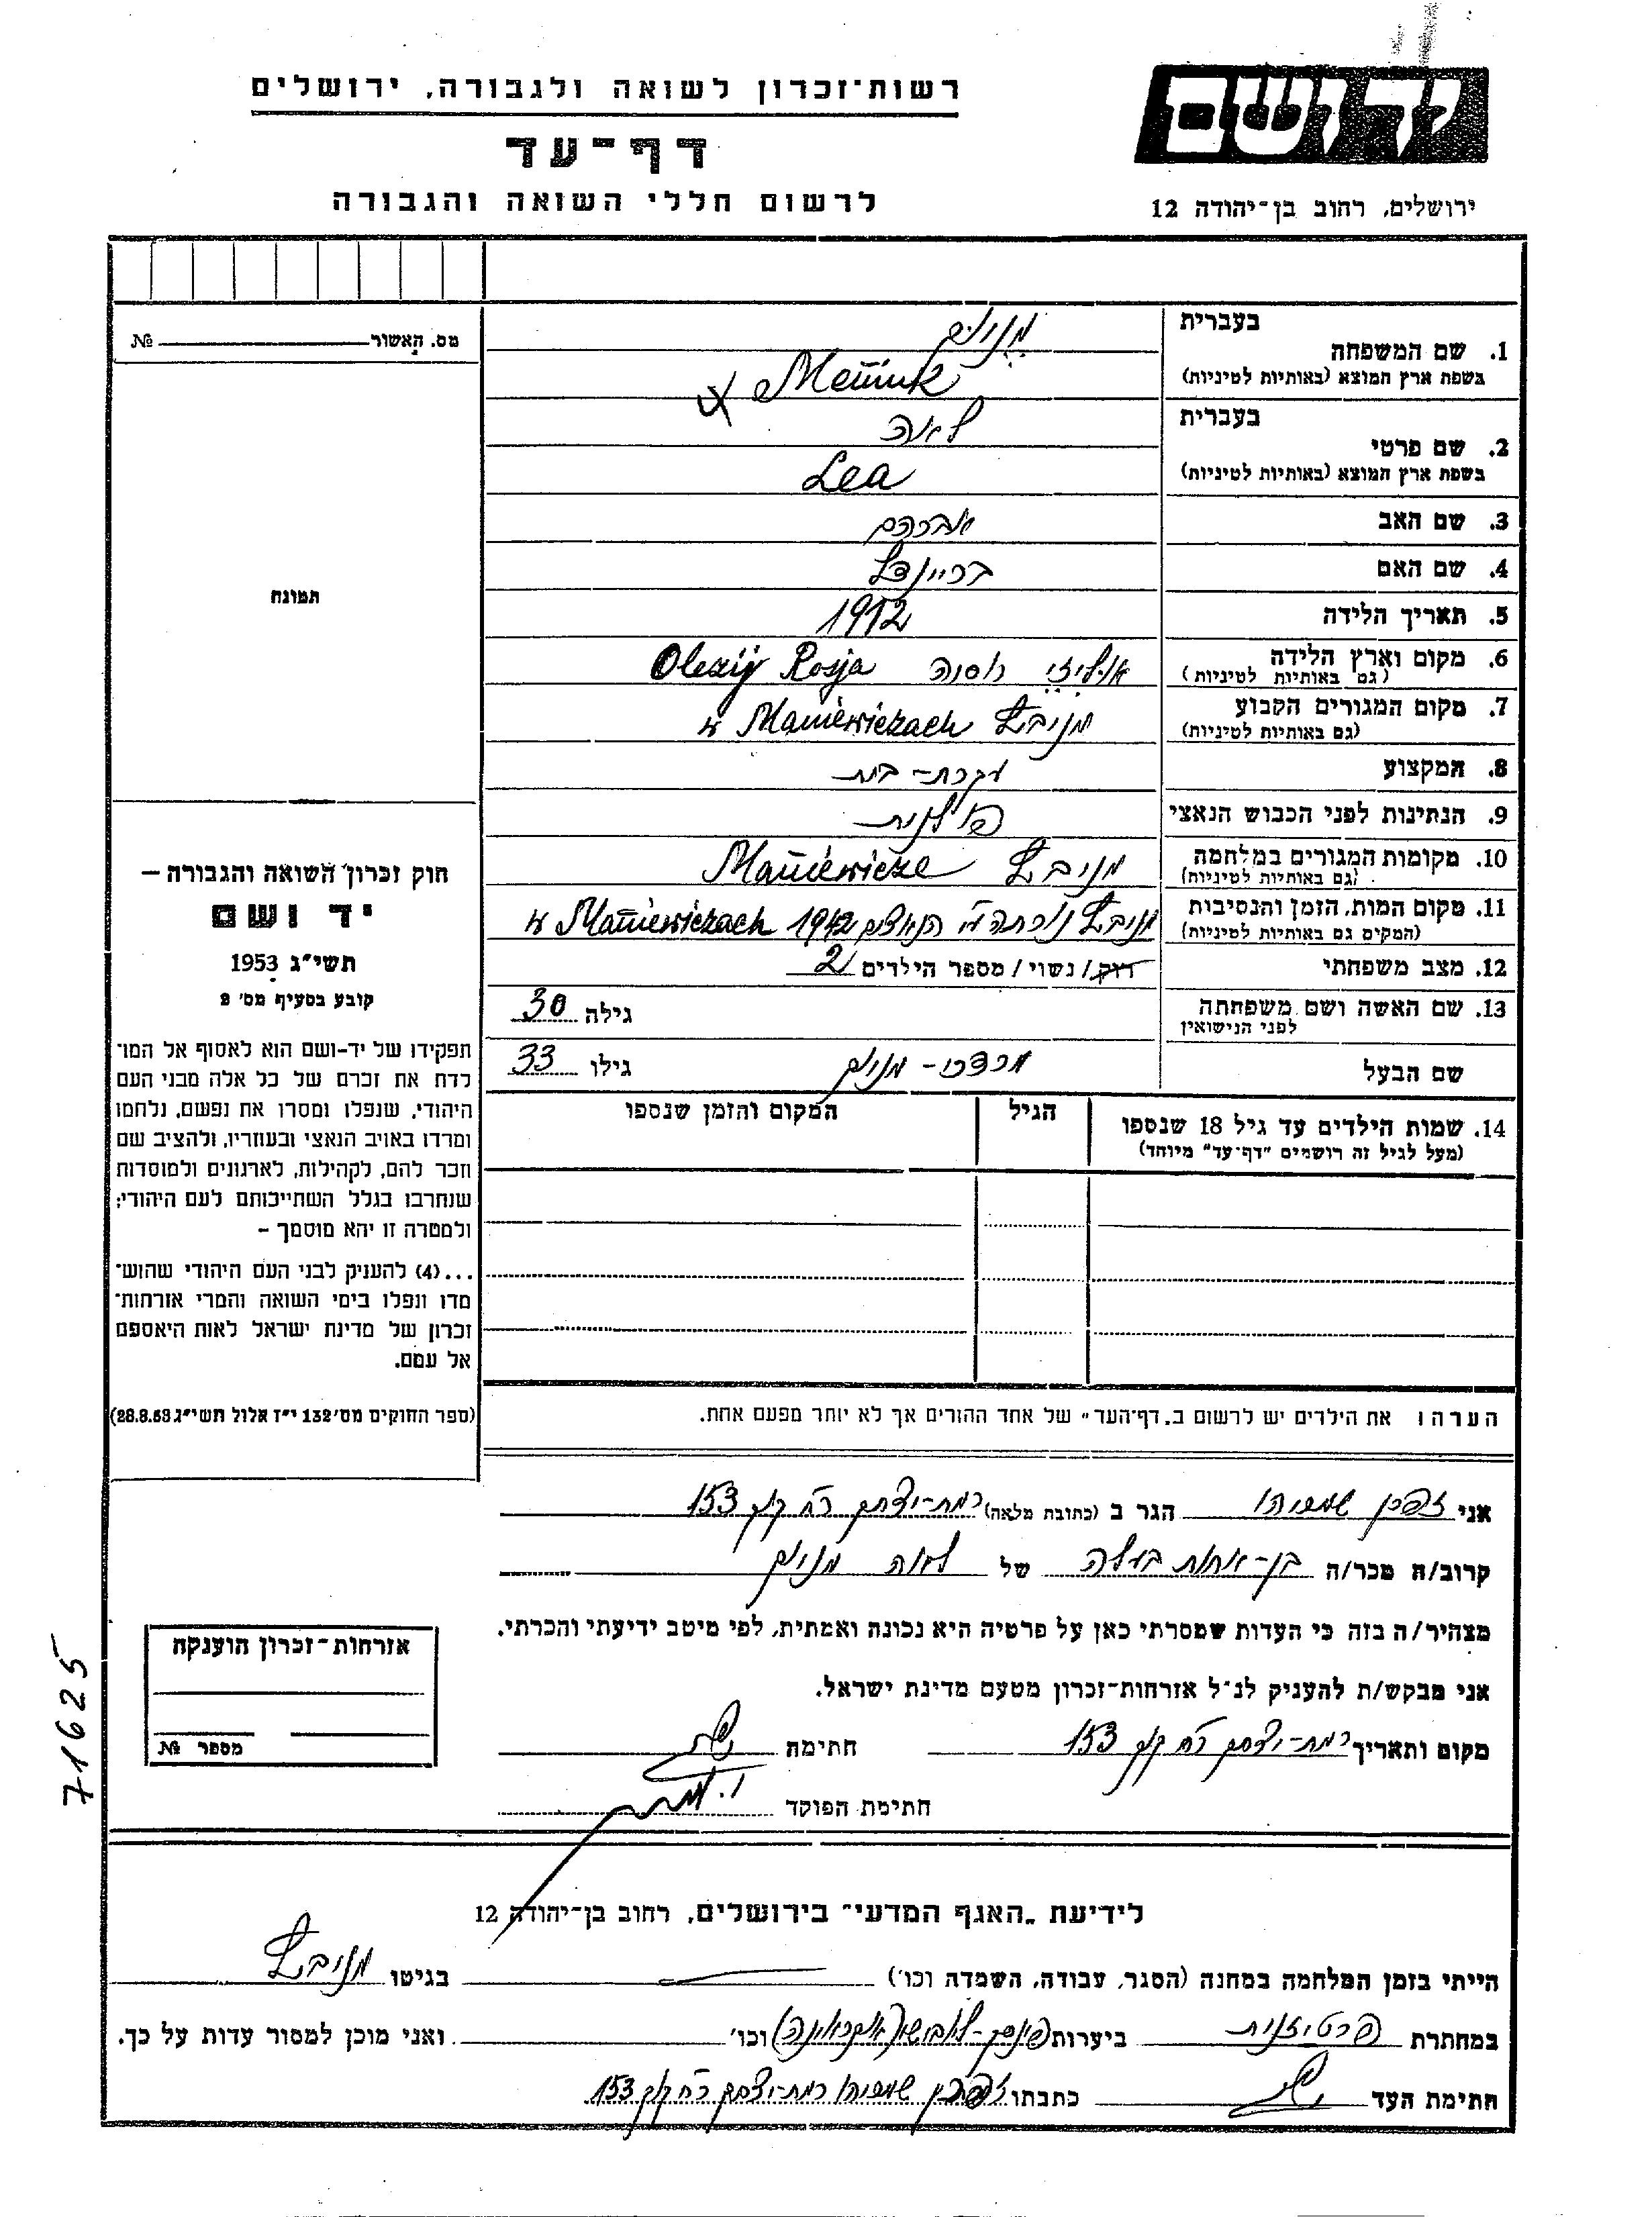 רשות־זכרון לשואה ולגבורה, ירושלים
יד ושם
דף־עד
לרשום חללי השואה והגבורה
ירושלים, רחוב בן־יהודה 12
מס. האשור № 
תמונה
חוק זכרון השואה והגבורה –
יד ושם
תשי״ג 1953
קובע בסעיף מס׳ 2
תפקידו של יד-ושם הוא לאסוף אל המו־
לדת את זכרם של כל אלה מבני העם
היהודי, שנפלו ומסרו את נפשם, נלחמו
ומרדו באויב הנאצי ובעוזריו, ולהציב שם
וזכר להם, לקהילות, לארגונים ולמוסדות
שנחרבו בגלל השתייכותם לעם היהודי;
ולמטרה זו יהא מוסמך –
...(4) להעניק לבני העם היהודי שהוש־
מדו ונפלו בימי השואה והמרי אזרחות־
זכרון של מדינת ישראל לאות היאספם
אל עמם.
(ספר החוקים מס׳ 132 י״ז אלול תשי״ג 28.8.53)
בעברית מניוק
1. שם המשפחה
בשפת ארץ המוצא (באותיות לטיניות) Meniuk
בעברית לאה
2. שם פרטי
בשפת ארץ המוצא (באותיות לטיניות) Lea
3. שם האב אברהם
4. שם האם בריינדל
5. תאריך הלידה 1912
6. מקום וארץ הלידה רוסיה Olezij Rosja
(גם באותיות לטיניות)
7. מקום המגורים הקבוע מניביץ w Maniewiczach
(גם באותיות לטיניות)
8. המקצוע עקרת-בית
9. הנתינות לפני הכבוש הנאצי פולנית
10. מקומות המגורים במלחמה מניביץ Maniewicze
(גם באותיות לטיניות)
11. מקום המות, הזמן והנסיבות מניביץ נרצחה ע״י הנאצים 1942 w Maniewiczach
(המקום גם באותיות לטיניות)
12. מצב משפחתי רוק/נשוי/מספר הילדים 2
13. שם האשה ושם משפחתה גילה 30
לפני הנישואין
שם הבעל מרדכי-מניוק גילו 33
14. שמות הילדים עד גיל 18 שנספו הגיל המקום והזמן שנספו
(מעל לגיל זה רושמים ״דף־עד״ מיוחד)
הערה: את הילדים יש לרשום ב„דף־העד״ של אחד ההורים אך לא יותר מפעם אחת.
אני זפרן שמעיהו הגר ב (כתובת מלאה) רמת-יצחק רח׳ קוק 153
קרוב/ה מכר/ה בן-אחות בעלה של לאה מניוק
מצהיר/ה בזה כי העדות שמסרתי כאן על פרטיה היא נכונה ואמתית, לפי מיטב ידיעתי והכרתי.
אני מבקש/ת להעניק לנ״ל אזרחות־זכרון מטעם מדינת ישראל.
מקום ותאריך רמת-יצחק רח׳ קוק 153 חתימה
חתימת הפוקד
אזרחות־זכרון הוענקה
מספר №
71625
לידיעת „האגף המדעי״ בירושלים, רחוב בן־יהודה 12
הייתי בזמן המלחמה במחנה (הסגר, עבודה, השמדה וכו׳) בגיטו מניביץ
במחתרת פרטיזנית ביערות פינסק- (אוקראינה) וכו׳ ואני מוכן למסור עדות על כך.
חתימת העד כתבתו זפרן שמעיהו רמת-יצחק רח׳ קוק 153